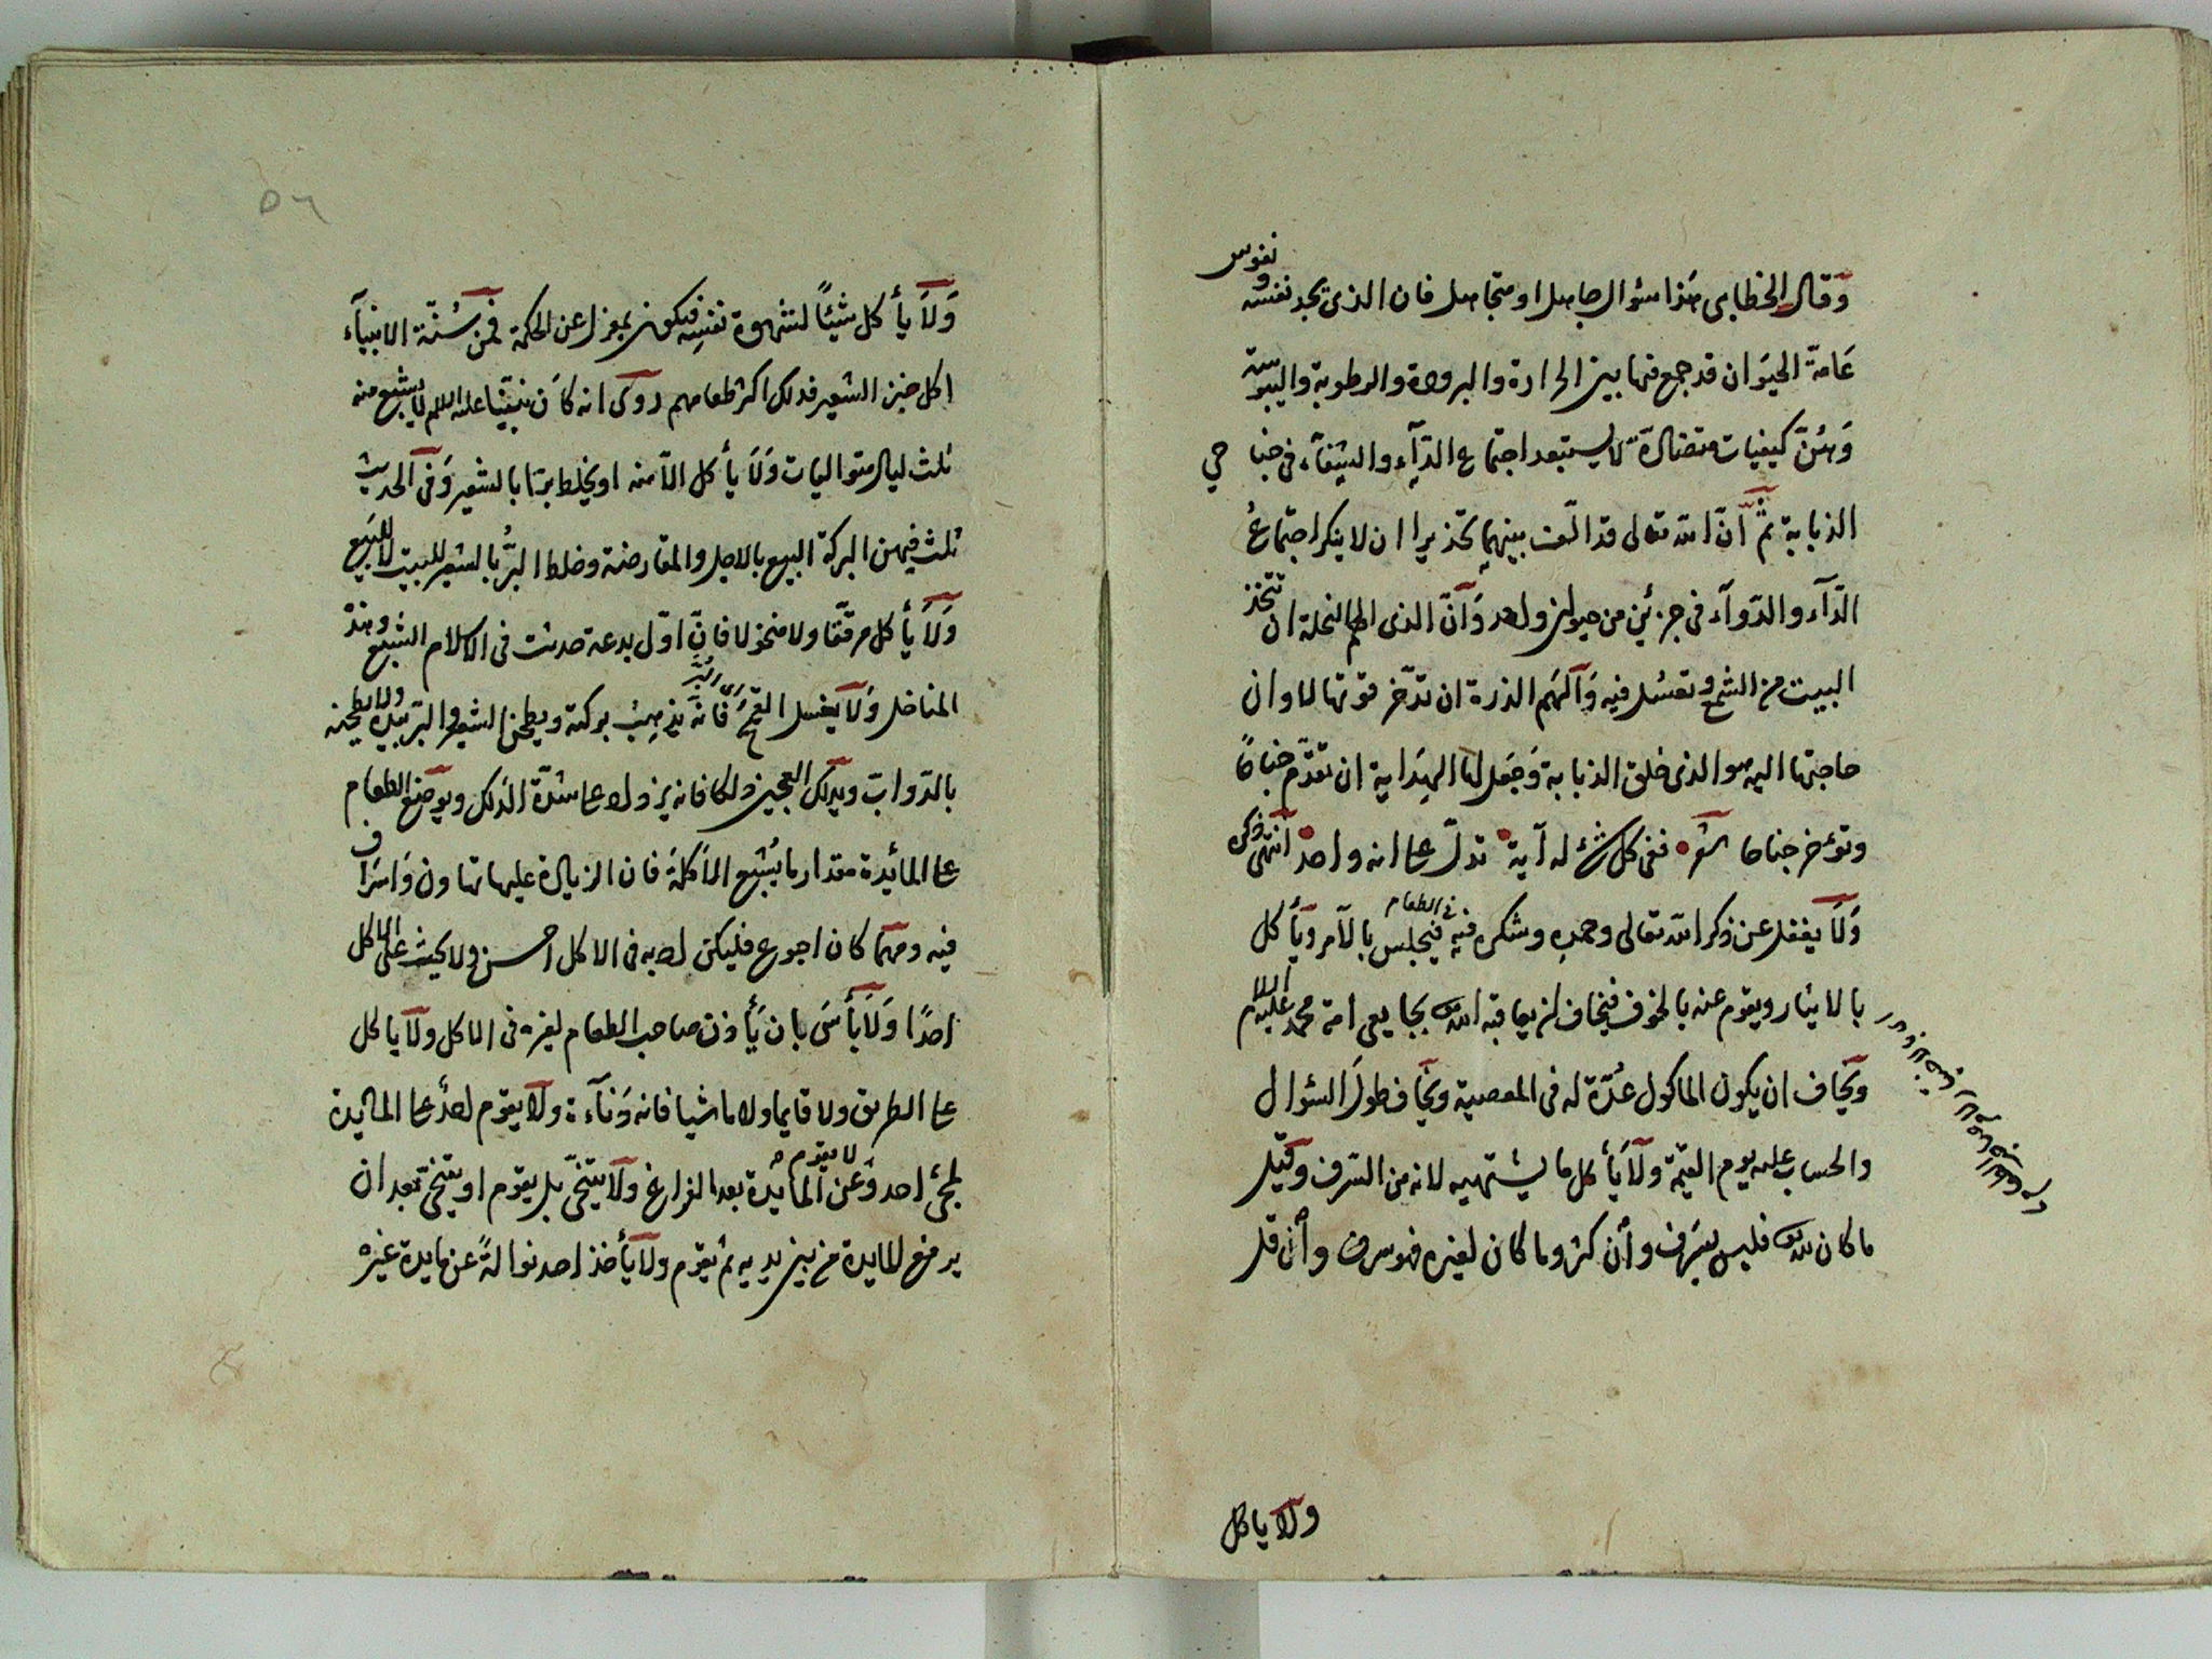 وقال الخطابى هذا سؤال جاهل او متجاهل فان الذى يجد نفسه ونفوس
عَامّة الحيَوان قد جمع فيها بين الحرارة والبرودة والرطوبة واليبوسة
وَهىَ كيفيات متضادّة لا يستبعد اجتماع الدّآءِ والشِفآء فى جناحي
الذبابة ثمّ انّ الله تعالى قد الّف بينهما تحذيرا ان لا ينكر اجتماعُ
الدّآء والدّوآء فى جزئين من حيوان واحد وَانّ الذى الهم النحلة ان تتّخذ
البيت من الشمع وتعسُل فيه وَالهَم الذرة ان تدّخر قوتها لاوان
حاجتها اليه هو الذى خلق الذبابة وَجعل لها الهِدَاية ان تقدّم جناحًا
وتؤخر جناحا شعر ففى كل شئ له آية تدلّ على انه واحد انتهى
وَلَا يغفل عن ذكر الله تعالى وحمدِه وشكره فيه فى الطعام فيجلس بالآمر ويَأكل
بالايثار ويقوم عنه بالخوف فيخاف ان يعاقبه الله بجايعى امة محمد عليه السلام
ويخاف ان يكون الماكول عُدّة له فى المعصية ويخاف طولَ السّؤال
والحساب عليه يوم القيمة ولَا يَأكل ما يشتهيه لانه من السّرف وقيل
ما كان لله فليس بسَرف وأن كثر وما كان لغيره فهو سرف وأن قلّ
ولَا ياكل
٥٦
وَلَا يأكل شيئًا لشهوة نفسِه فيكون بمعزل عن الحكمة فمن سُنّة الانبيآء
اكل خبز الشعير فذلك اكثر طعامهم روى انه كان نبيّنا عليه السلام لا يشبع منه
ثلث ليال متواليات وَلَا يأكل الّا منه او يخلط برّا بالشعير وَفى الحديث
ثلث فيهن البركة البيع بالاجل والمقارضة وخلط البُرّ بالشعير للبيت لا للبيع
وَلَا يأكل مرقّقا ولا منخولا فانّ اوّل بدعة حدثت فى الاسلام الشبع وهذه
المناخل وَلَا يغسل القمحَ اى البُرّ فانّه يذهِبُ بركته ويطحن الشعير والبرّ بيده ولا يطحنه
بالدّوابّ ويدلك العجين دلكا فانه يزداد على شدّة الدّلك ويوضع الطعام
على المائِدة مقدار ما يُشبع الاكلَة فان الزيادة عليها تهاون وَاسرَاف
فيه ومهما كان اجوع فليكن ادبه فى الاكل احسن ولا يحث على الاكل
احدًا وَلَا بَأسَ بان يَأذن صاحب الطعام لغيره فى الاكل ولَا ياكل
على الطريق ولا قايما ولا ماشيا فانه دَنآءة ولَا يقوم احدٌ على المائدة
لمجئ احد وَعن المائدة بعد الفراغ لا يقوم ولَا يتنحّى بل يقوم او يتنحّى بعد ان
يرفع المايدة من بين يديه ثم يقوم ولَا يَأخذ احد نوالةً عن مايدة غيره